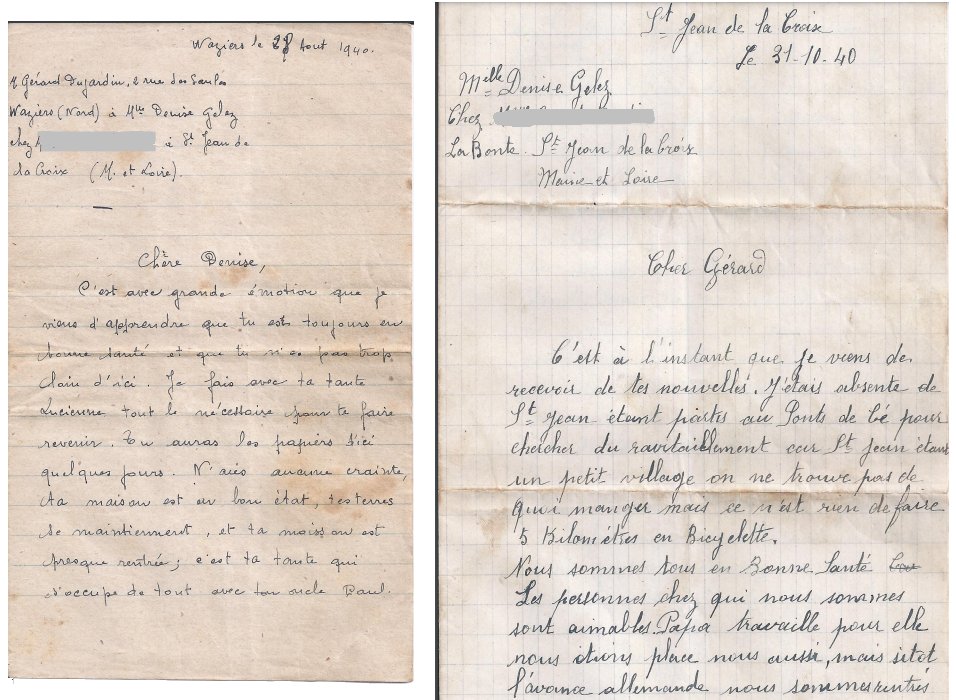 Waziers le 28 Aout 1940.
M Gérard Dujardin, 2 rue des Saules
Waziers (Nord) à Mlle Denise Gelez
chez à St Jean de
la Croix (M. et Loire).
Chère Denise,
C'est avec grande émotion que je
viens d'apprendre que tu es toujours en
bonne santé et que tu n'es pas trop
loin d'ici. Je fais avec ta tante
Lucienne tout le nécessaire pour te faire
revenir. Tu auras les papiers d'ici
quelques jours. N'aies aucune crainte,
ta maison est en bon état, tes terres
se maintiennent, et ta moisson est
presque rentrée; c'est ta tante qui
s'occupe de tout avec ton oncle Paul.
St Jean de la Croix
Le 31-10-40
Melle Denise Gelez
Chez
La Bonte. St Jean de la Croix
Maine et Loire
Cher Gérard
C'est à l'instant que je viens de
recevoir de tes nouvelles. J'étais absente de
St Jean étant partis au Ponts de Cé pour
chercher du ravitaillement car St Jean étant
un petit village on ne trouve pas de
quoi manger mais ce n'est rien de faire
5 Kilomètres en Bicyclette.
Nous sommes tous en Bonne Santé
Les personnes chez qui nous sommes
sont aimables. Papa travaille pour elle
nous étions placé nous aussi, mais sitot
l'avance allemande nous sommes rentrés